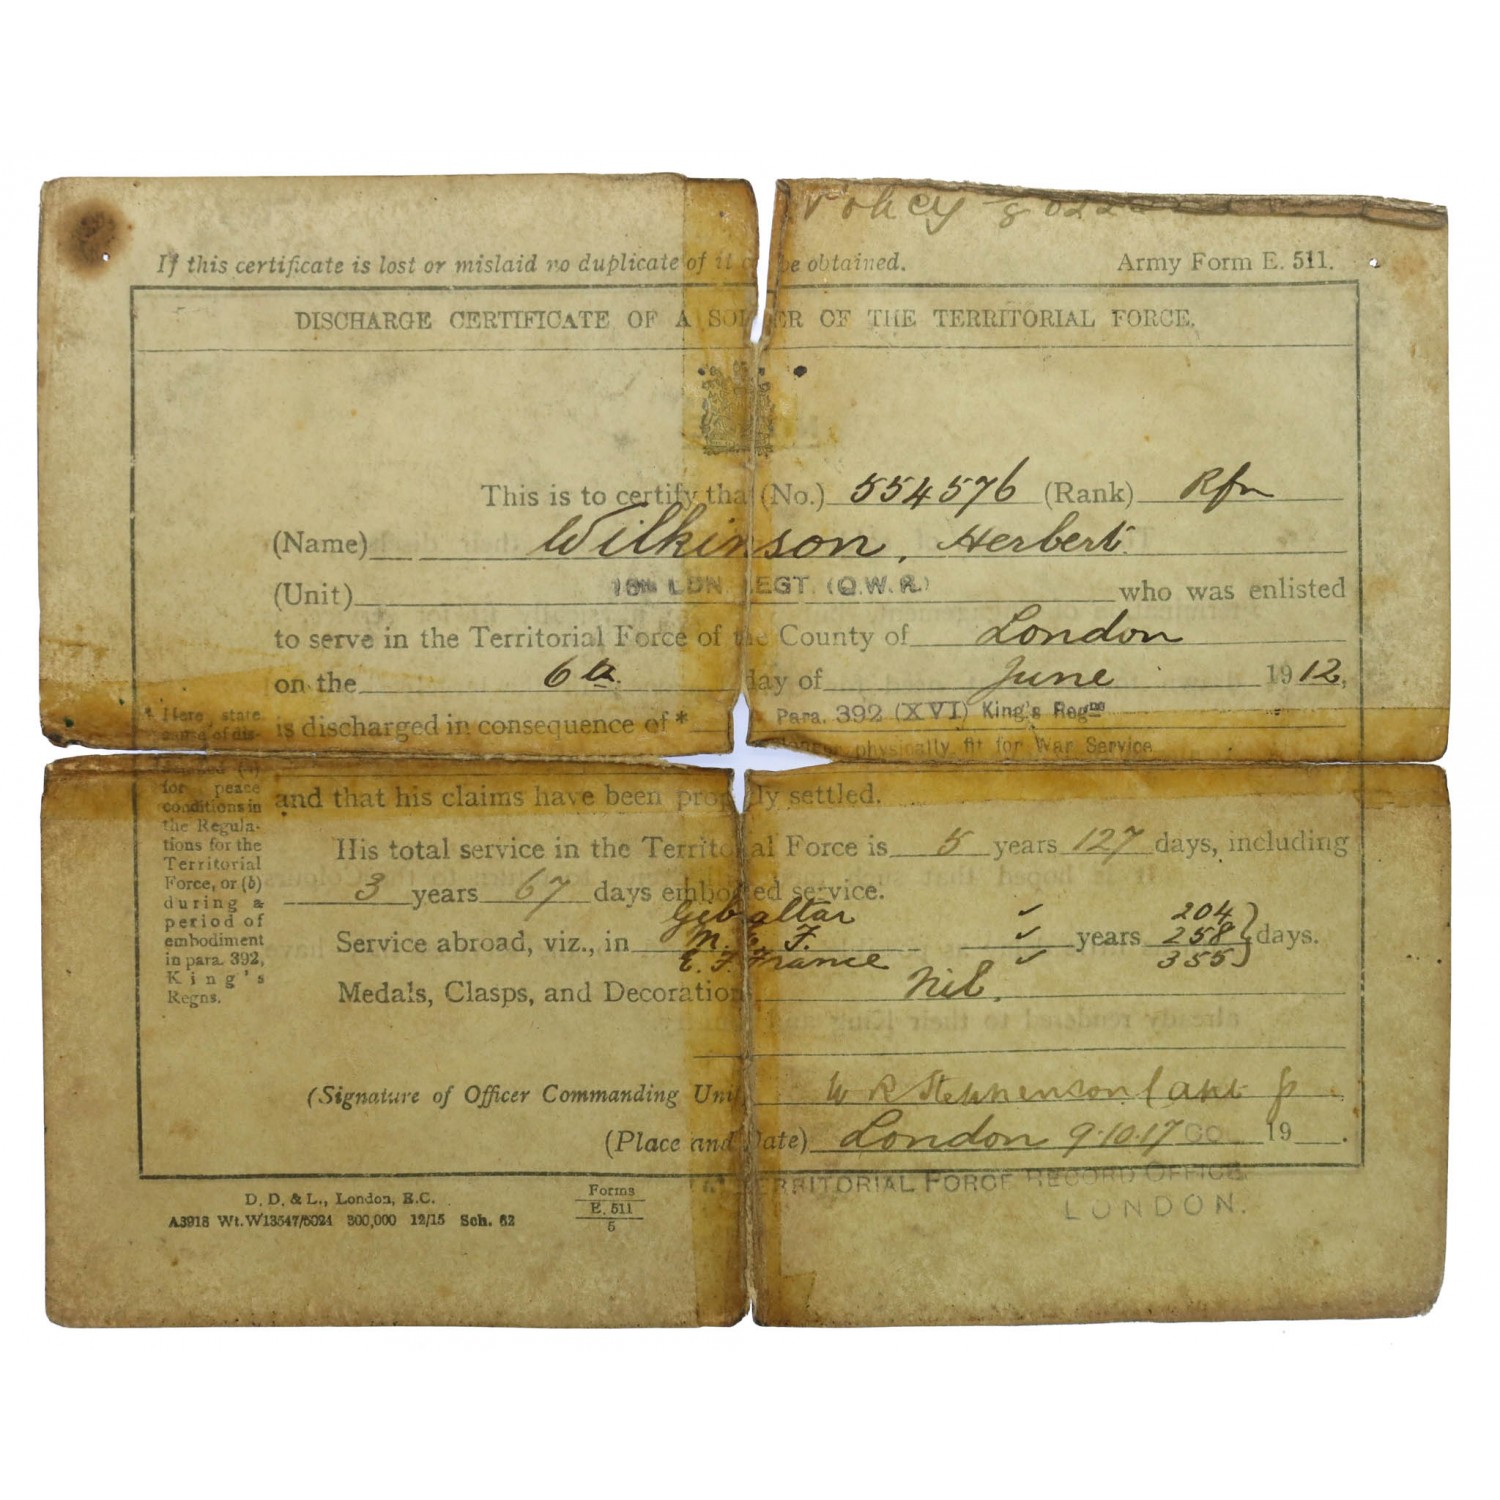 Policy
If this certificate is lost or mislaid no duplicate of it be obtained. Army Form E. 511.
DISCHARGE CERTIFICATE OF A SOLDIER OF THE TERRITORIAL FORCE.
This is to certify that (No.) 554576 (Rank) Rfn
(Name) Wilkinson, Herbert
(Unit) 16th LDN REGT. (Q.W.R.) who was enlisted
to serve in the Territorial Force of the County of London
on the 6th day of June 1912,
is discharged in consequence of * Para. 392 (XVI) King's Regns
physically fit for War Service
and that his claims have been properly settled.
His total service in the Territorial Force is 5 years 127 days, including
3 years 67 days embodied service.
Service abroad, viz., in Gibraltar ✓ years 204 days.
M. E. F. ✓ 258
E. F. France ✓ 355
Medals, Clasps, and Decorations Nil.
(Signature of Officer Commanding Unit) W R Stephenson Capt
(Place and Date) London 9.10.17 19 .
* Here state
cause of dis-
for peace
conditions in
the Regula-
tions for the
Territorial
Force, or (b)
during a
period of
embodiment
in para. 392,
King's
Regns.
TERRITORIAL FORCE RECORD OFFICE
LONDON.
D. D. & L., London, E.C.
A3918 Wt. W13547/5024 300,000 12/15 Sch. 62
Forms
E. 511
5